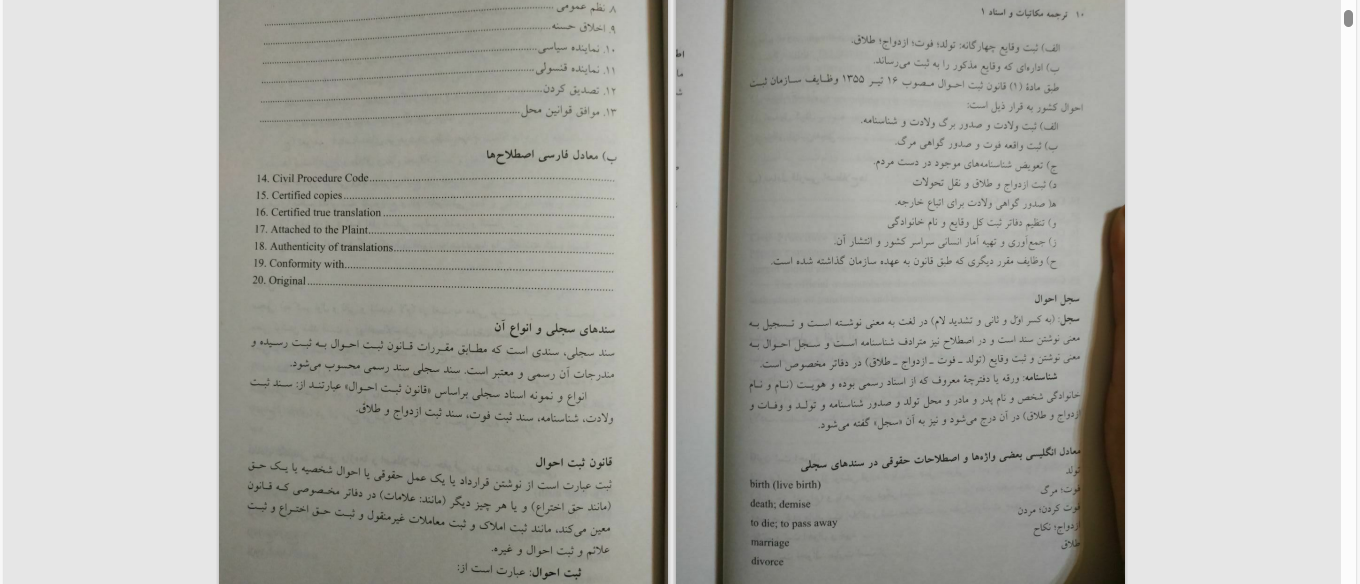 ۸. نظم عمومی
۹. اخلاق حسنه
۱۰. نماینده سیاسی
۱۱. نماینده قنسولی
۱۲. تصدیق کردن
۱۳. موافق قوانین محل
ب) معادل فارسی اصطلاح‌ها
14. Civil Procedure Code
15. Certified copies
16. Certified true translation
17. Attached to the Plaint
18. Authenticity of translations
19. Conformity with
20. Original
سندهای سجلی و انواع آن
سند سجلی، سندی است که مطابق مقررات قانون ثبت احوال به ثبت رسیده و
مندرجات آن رسمی و معتبر است. سند سجلی سند رسمی محسوب می‌شود.
انواع و نمونه اسناد سجلی براساس «قانون ثبت احوال» عبارتند از: سند ثبت
ولادت، شناسنامه، سند ثبت فوت، سند ثبت ازدواج و طلاق.
قانون ثبت احوال
ثبت عبارت است از نوشتن قرارداد یا یک عمل حقوقی یا احوال شخصیه یا یک حق
(مانند حق اختراع) و یا هر چیز دیگر (مانند: علامات) در دفاتر مخصوصی که قانون
معین می‌کند، مانند ثبت املاک و ثبت معاملات غیرمنقول و ثبت حق اختراع و ثبت
علائم و ثبت احوال و غیره.
ثبت احوال: عبارت است از:
۱۰ ترجمه مکاتبات و اسناد ۱
الف) ثبت وقایع چهارگانه: تولد؛ فوت؛ ازدواج؛ طلاق.
ب) اداره‌ای که وقایع مذکور را به ثبت می‌رساند.
طبق مادۀ (۱) قانون ثبت احوال مصوب ۱۶ تیر ۱۳۵۵ وظایف سازمان ثبت
احوال کشور به قرار ذیل است:
الف) ثبت ولادت و صدور برگ ولادت و شناسنامه.
ب) ثبت واقعه فوت و صدور گواهی مرگ.
ج) تعویض شناسنامه‌های موجود در دست مردم.
د) ثبت ازدواج و طلاق و نقل تحولات
ه‍) صدور گواهی ولادت برای اتباع خارجه.
و) تنظیم دفاتر ثبت کل وقایع و نام خانوادگی
ز) جمع‌آوری و تهیه آمار انسانی سراسر کشور و انتشار آن.
ح) وظایف مقرر دیگری که طبق قانون به عهده سازمان گذاشته شده است.
سجل احوال
سجل: (به کسر اوّل و ثانی و تشدید لام) در لغت به معنی نوشته است و تسجیل به
معنی نوشتن سند است و در اصطلاح نیز مترادف شناسنامه است و سجل احوال به
معنی نوشتن و ثبت وقایع (تولد ـ فوت ـ ازدواج ـ طلاق) در دفاتر مخصوص است.
شناسنامه: ورقه یا دفترچۀ معروف که از اسناد رسمی بوده و هویت (نام و نام
خانوادگی شخص و نام پدر و مادر و محل تولد و صدور شناسنامه و تولد و وفات و
ازدواج و طلاق) در آن درج می‌شود و نیز به آن «سجل» گفته می‌شود.
معادل انگلیسی بعضی واژه‌ها و اصطلاحات حقوقی در سندهای سجلی
تولد birth (live birth)
فوت؛ مرگ death; demise
فوت کردن؛ مردن to die; to pass away
ازدواج؛ نکاح marriage
طلاق divorce